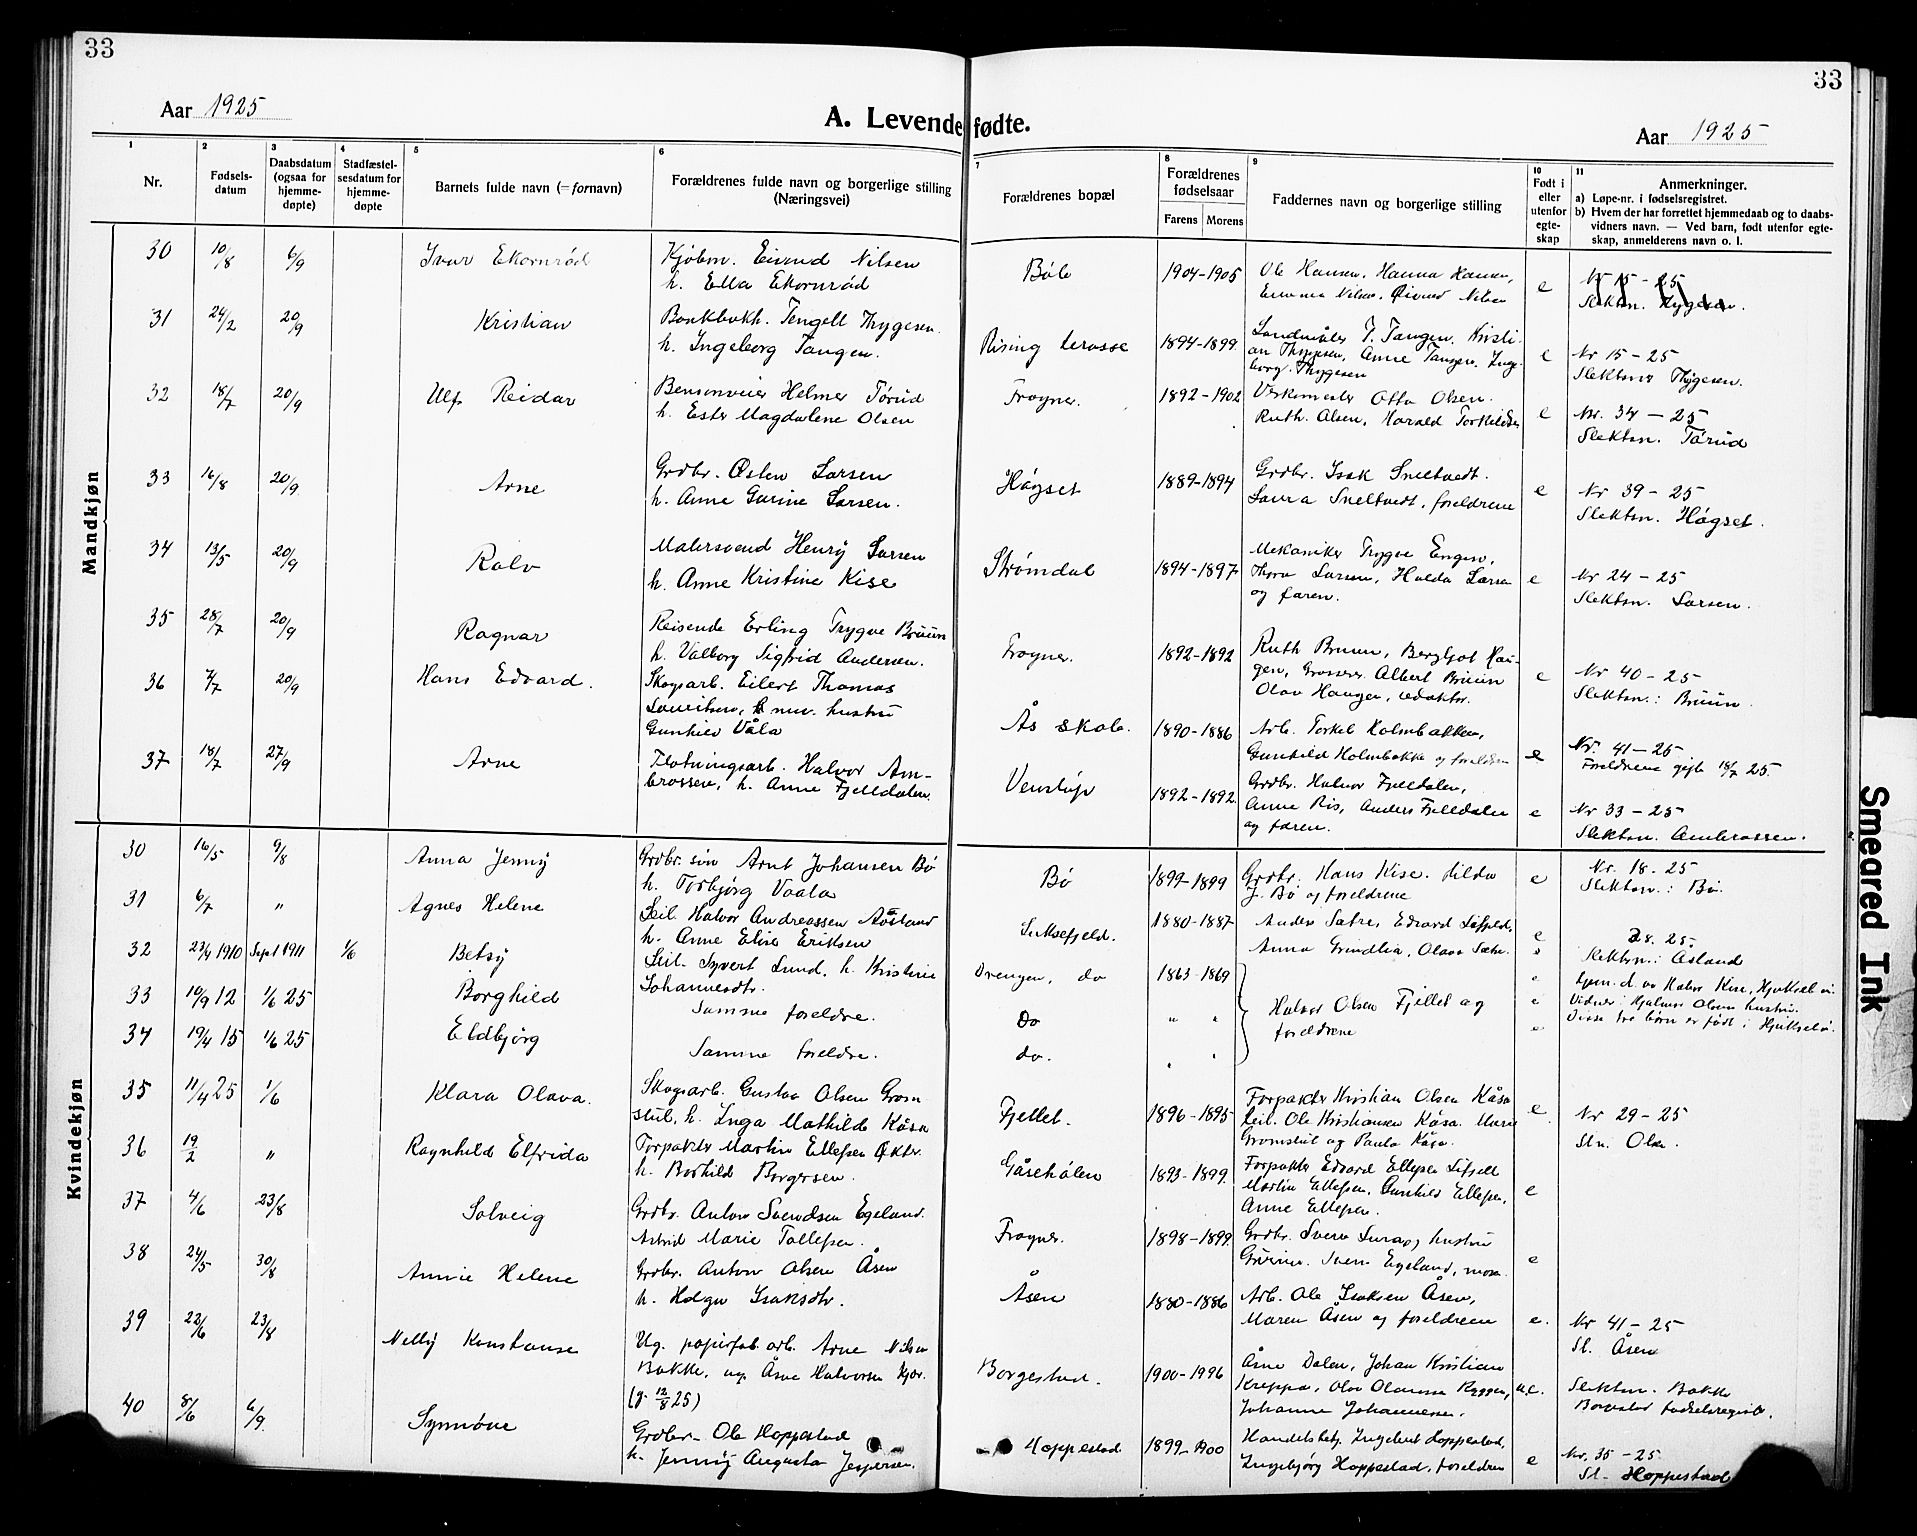 33
33
Aar 1925
A. Levendefødte.
Aar 1925
1
2
3
4
5
6
7
8
9
10
11
Nr.
Fødsels-
datum
Daabsdatum
(ogsaa for
hjemme-
døpte)
Stadfæstel-
sesdatum for
hjemme-
døpte
Barnets fulde navn (= fornavn)
Forældrenes fulde navn og borgerlige stilling
(Næringsvei)
Forældrenes bopæl
Forældrenes
fødselsaar
Farens Morens
Faddernes navn og borgerlige stilling
Født i
eller
utenfor
egte-
skap
Anmerkninger.
a) Løpe-nr. i fødselsregistret.
b) Hvem der har forrettet hjemmedaab og to daabs-
vidners navn. — Ved barn, født utenfor egte-
skap, anmelderens navn o. l.
Mandkjøn
30 10/8 6/9 Ivar Ekornrød
Kjøbm. Eivind Nilsen
h. Ella Ekornrød
Bøle 1904-1905
Ole Hansen, Hanna Hansen,
Emma Nilsen, Eivind Nilsen
e
Nr 15 - 25
Slektsn. Thygesen.
31 24/2 20/9 Kristian
Bankbokh. Tengell Thygesen.
h. Ingeborg Tangen.
Rising terasse 1894-1899
Landmåler T. Tangen, Kristi-
an Thygesen, Anne Tangen, Inge-
borg Thygesen
e
Nr 15 - 25
Slektsnr Thygesen.
32 18/7 20/9 Ulf Reidar
Helmer Tørud
h. Ester Magdalene Olsen
Frogner. 1892-1902
Verksmester Otto Olsen.
Ruth Olsen, Harald Torkildsen
e
Nr. 34 - 25
Slektsn. Tørud
33 16/8 20/9 Arne
Grdbr. Østen Larsen
h. Anne Gurine Larsen.
Høgset 1889-1894
Grdbr. Isak Sneltvedt.
Laura Sneltvedt, foreldrene
e
Nr 39 - 25
Slektsn. Høgset.
34 13/5 20/9 Rolv
Malersvend Henry Larsen
h. Anne Kristine Kise
Strømdal 1894-1897
Mekaniker Trygve Engen,
Thora Larsen, Hulda Larsen
og faren.
e
Nr 24 - 25
Slektsn. Larsen.
35 28/7 20/9 Ragnar
Reisende Erling Trygve Bruun
h. Valborg Sigfrid Andersen.
Frogner. 1892-1892
Ruth Bruun, Bergljot Hau-
gen, Grosserer Albert Bruun
Olav Haugen, redaktør.
e
Nr 40 - 25
Slektsn.: Bruun.
36 7/7 20/9 Hans Edvard.
Skogsarb. Eilert Thomas
Lauritsen, h nuv. hustru
Gunhild Våla
Ås skole. 1890-1886
Arb. Torkel Holmbakken,
Gunhild Holmbakke og foreldren
e
Nr. 41 - 25
Foreldrene gift 18/7 25.
37 18/7 27/9 Arne
Fløtningsarb. Halvor Am-
brossen, h. Anne Fjelldalen.
Venstøp 1892-1892
Grdbr. Halvor Fjelldalen,
Anne Ris, Anders Fjelldalen
og faren.
e
Nr 33 - 25
Slektsn. Ambrossen.
Kvindekjøn
30 16/5 9/8 Anna Jenny
Grdbr. søn Arnt Johansen Bø
h. Torbjørg Vaala
Bø 1899-1899
Grdbr. Hans Kise. Hilda
J. Bø og foreldrene
e
Nr. 18. 25
Slektsn.: Bø.
31 6/7 " Agnes Helene
Leil. Halvor Andreassen Aasland
h. Anne Elise Eriksen
Luksefjeld. 1880-1887
Anders Sætre, Edvard
Anna Grindlia, Olava Sætre.
e
28. 25-
Slektsn.: Åsland
32 23/4 1910 Sept 1911 1/6 Betsy
Leil. Syvert Lund, h. Kristine
Johannesdtr.
Drengen, do 1863-1869
Halvor Olsen Fjellet og
foreldrene
e
Hjem. d. av Halvor Kise,
Vidner: Hjalmar Olsen hustru.
Disse tre børn er født i
33 19/9 12 1/6 25 Borghild
Samme foreldre.
Do " " e
34 19/4 15 1/6 25 Eldbjørg
Samme foreldre.
do. " " e
35 11/4 25 1/6 Klara Olava.
Skogsarb. Gustav Olsen Grom
stul, h. Inga Mathilde Kåsa
Fjellet. 1896-1895
Forpakter Kristian Olsen Kåsa
Leil. Ole Kristiansen Kåsa. Marie
Gromstul og Paula Kåsa.
e
Nr 29 - 25
Sln. Olsen.
36 19/2 " Ragnhild Elfrida
Forpakter Martin Ellefsen Økter.
h. Borhild Borgersen.
Gåsehølen 1893-1899
Forpakter Edvard Ellefsen
Martin Ellefsen, Gunhild Ellefsen,
Anne Ellefsen.
e
37 4/6 23/8 Solveig
Grdbr. Anton Svendsen Egeland.
Astrid Marie Tollefsen.
Frogner. 1898-1899
Grdbr. Svein hustru
Gurine. Svein Egeland, moren.
e
38 24/5 30/8 Annie Helene
Grdbr. Anton Olsen Åsen
h. Helga Isaksdtr.
Åsen 1880-1886
Arb. Ole Isaksen Åsen,
Maren Åsen og foreldrene
e.
Nr 41 - 25
Sl. Åsen
39 22/6 23/8 Nelly Konstanse
Ug. papirfab. arb. Arne Nilsen
Bakke, ug. Åsne Halvorsen
(g 12/8 25)
Borgestad. 1900-1996
Åsne Dalen, Johan Kristian
Kreppa, Olav
Johanne Johannessen.
u.e.
Slektsn. Bakke
Borgestad fødselsregister.
40 8/6 6/9. Synnøve
Grdbr. Ole Hoppestad
h. Jenny Augusta Jespersen.
Hoppestad 1899-1900
Handelsbetj. Ingebret Hoppestad,
Ingebjørg Hoppestad, foreldren
e
Nr. 35 - 25
Sl. Hoppestad
Smeared Ink